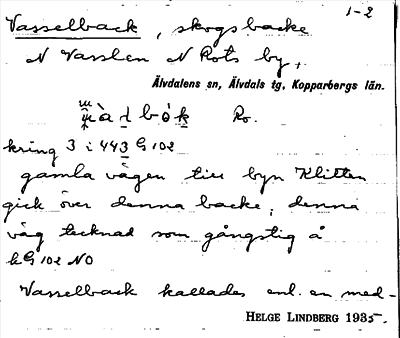 1-2
Vasselback, skogsbacke
N Vasslen N Rots by,
Älvdalens sn, Älvdals tg, Kopparbergs län.
Ro.
kring 3 i 443 G 102
gamla vägen till byn Klitten
gick över denna backe, denna
väg tecknad som gångstig å
kG 102 NO
Vasselback kallades enl. en med-
HELGE LINDBERG 1935.